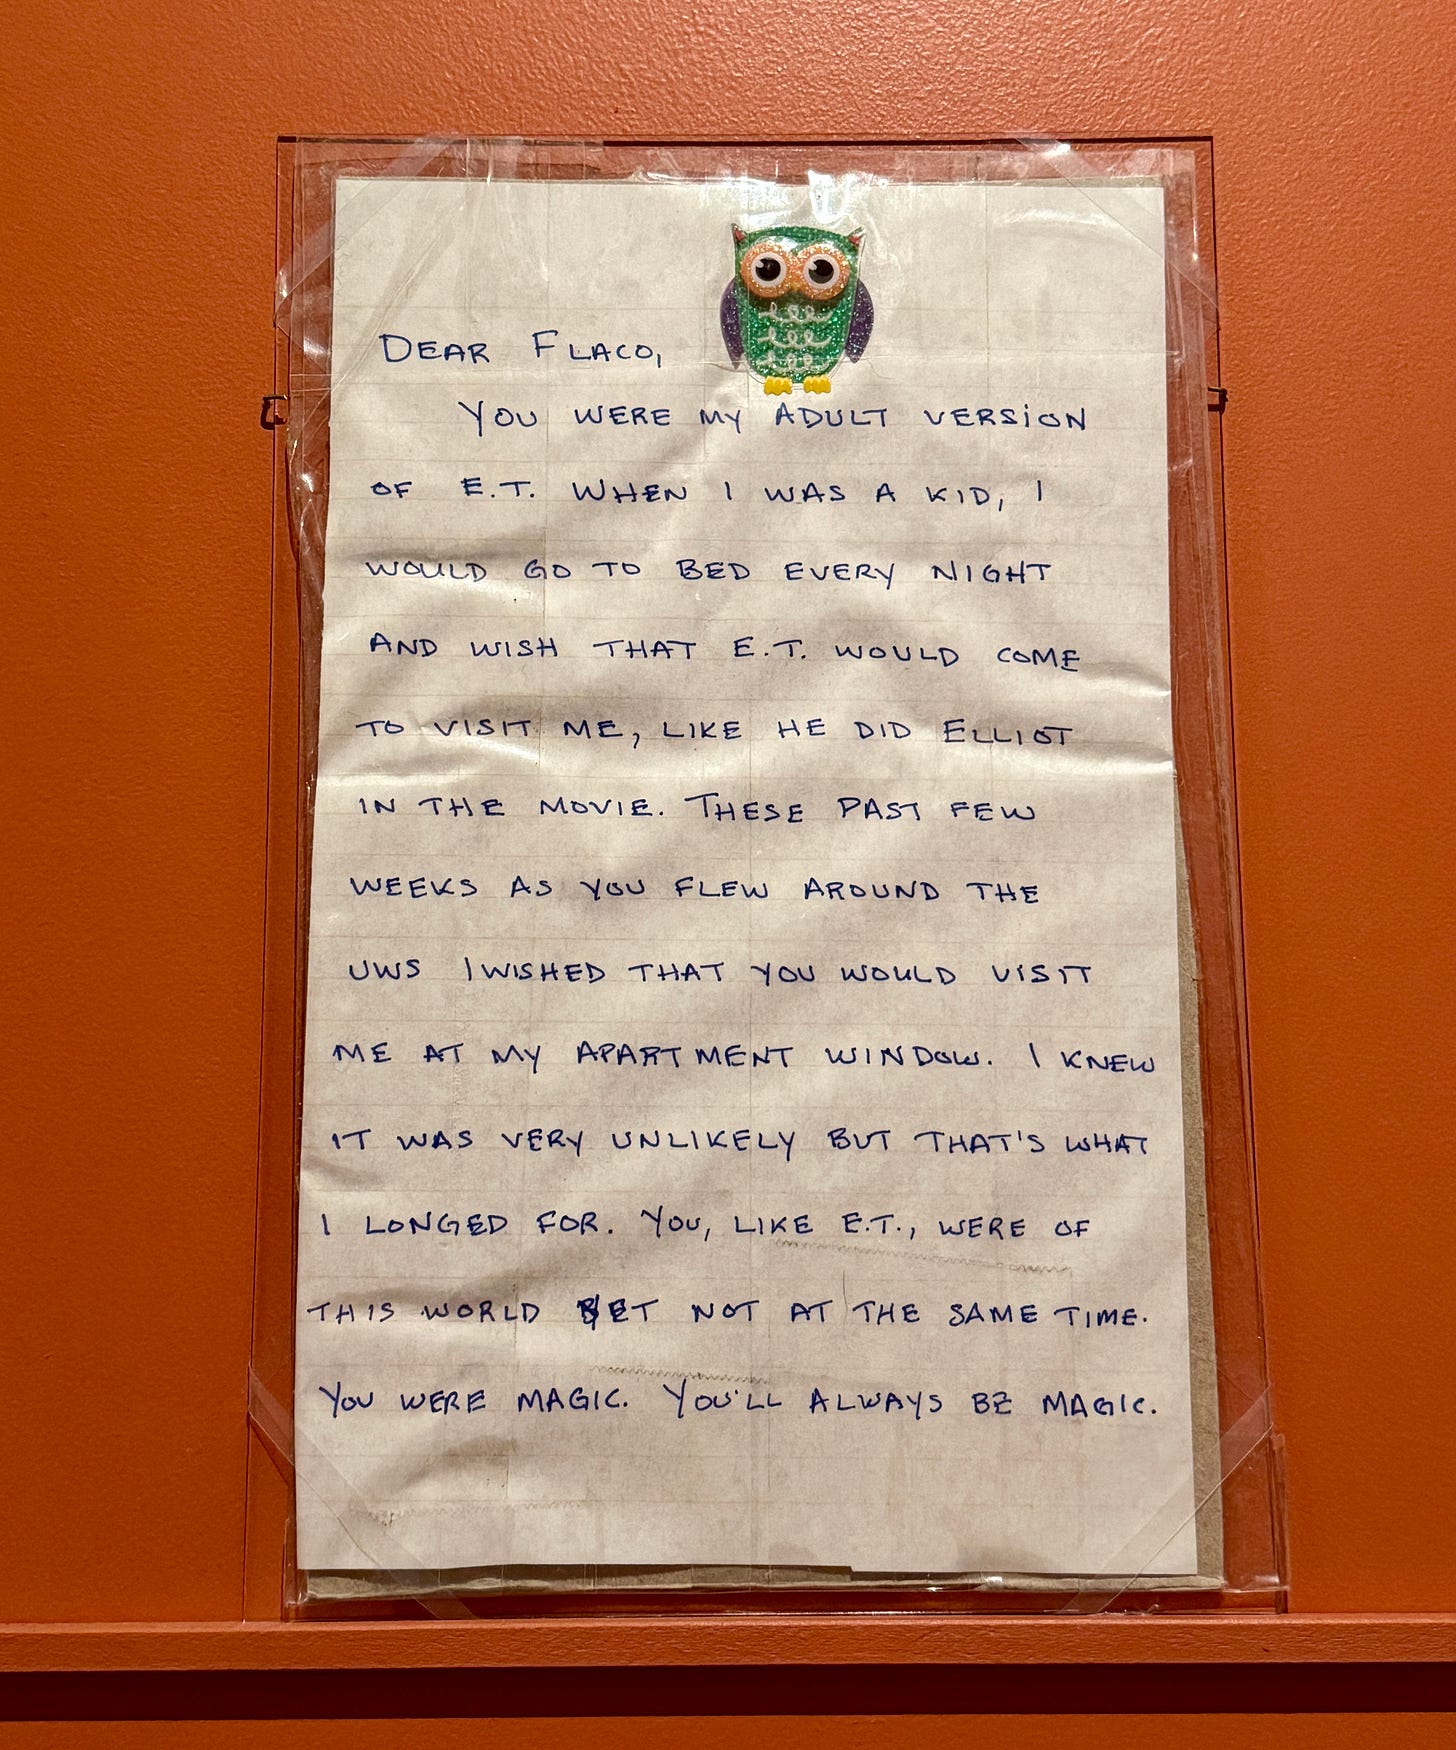 DEAR FLACO,
YOU WERE MY ADULT VERSION
OF E.T. WHEN I WAS A KID, I
WOULD GO TO BED EVERY NIGHT
AND WISH THAT E.T. WOULD COME
TO VISIT ME, LIKE HE DID ELLIOT
IN THE MOVIE. THESE PAST FEW
WEEKS AS YOU FLEW AROUND THE
UWS I WISHED THAT YOU WOULD VISIT
ME AT MY APARTMENT WINDOW. I KNEW
IT WAS VERY UNLIKELY BUT THAT'S WHAT
I LONGED FOR. YOU, LIKE E.T., WERE OF
THIS WORLD YET NOT AT THE SAME TIME.
YOU WERE MAGIC. YOU'LL ALWAYS BE MAGIC.